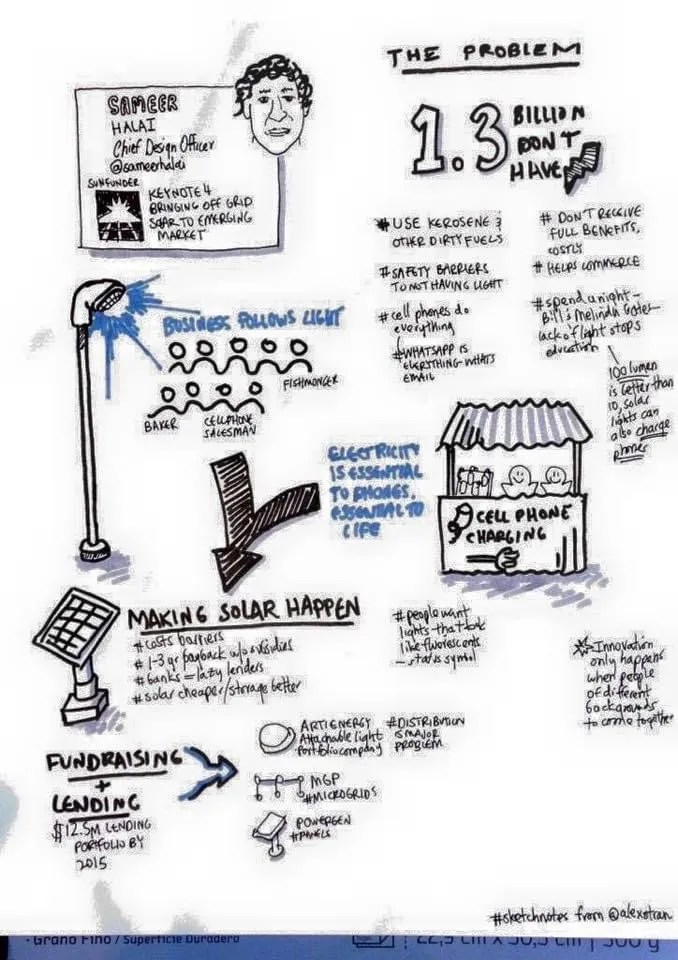 SAMEER
HALAI
Chief Design Officer
@sameerhalai
SUNFUNDER
KEYNOTE 4
BRINGING OFF GRID
SOLAR TO EMERGING
MARKET
THE PROBLEM
1.3 BILLION
DON'T
HAVE
# USE KEROSENE &
OTHER DIRTY FUELS
# SAFETY BARRIERS
TO NOT HAVING LIGHT
# cell phones do
everything
# WHATSAPP IS
EVERYTHING WHATS
EMAIL
# DON'T RECEIVE
FULL BENEFITS,
COSTLY
# HELPS COMMERCE
# spend a night –
Bill & Melinda Gates –
lack of light stops
education
100 lumen
is better than
10, solar
lights can
also charge
phones
BUSINESS FOLLOWS LIGHT
FISHMONGER
BAKER
CELLPHONE
SALESMAN
ELECTRICITY
IS ESSENTIAL
TO PHONES,
ESSENTIAL TO
LIFE
CELL PHONE
CHARGING
MAKING SOLAR HAPPEN
# costs barriers
# 1-3 yr payback w/o subsidies
# banks = lazy lenders
# solar cheaper/storage better
# people want
lights that look
like fluorescents
– status symbol
Innovation
only happens
when people
of different
backgrounds
to come together
FUNDRAISING
+
LENDING
$12.5M LENDING
PORTFOLIO BY
2015
ARTI ENERGY
Attachable light
Portfolio company
# DISTRIBUTION
IS MAJOR
PROBLEM
MGP
#MICROGRIDS
POWERGEN
#PANELS
#sketchnotes from @alexotran
· Grano Fino / Superficie Duradera
22,9 cm x 30,5 cm | 300 g